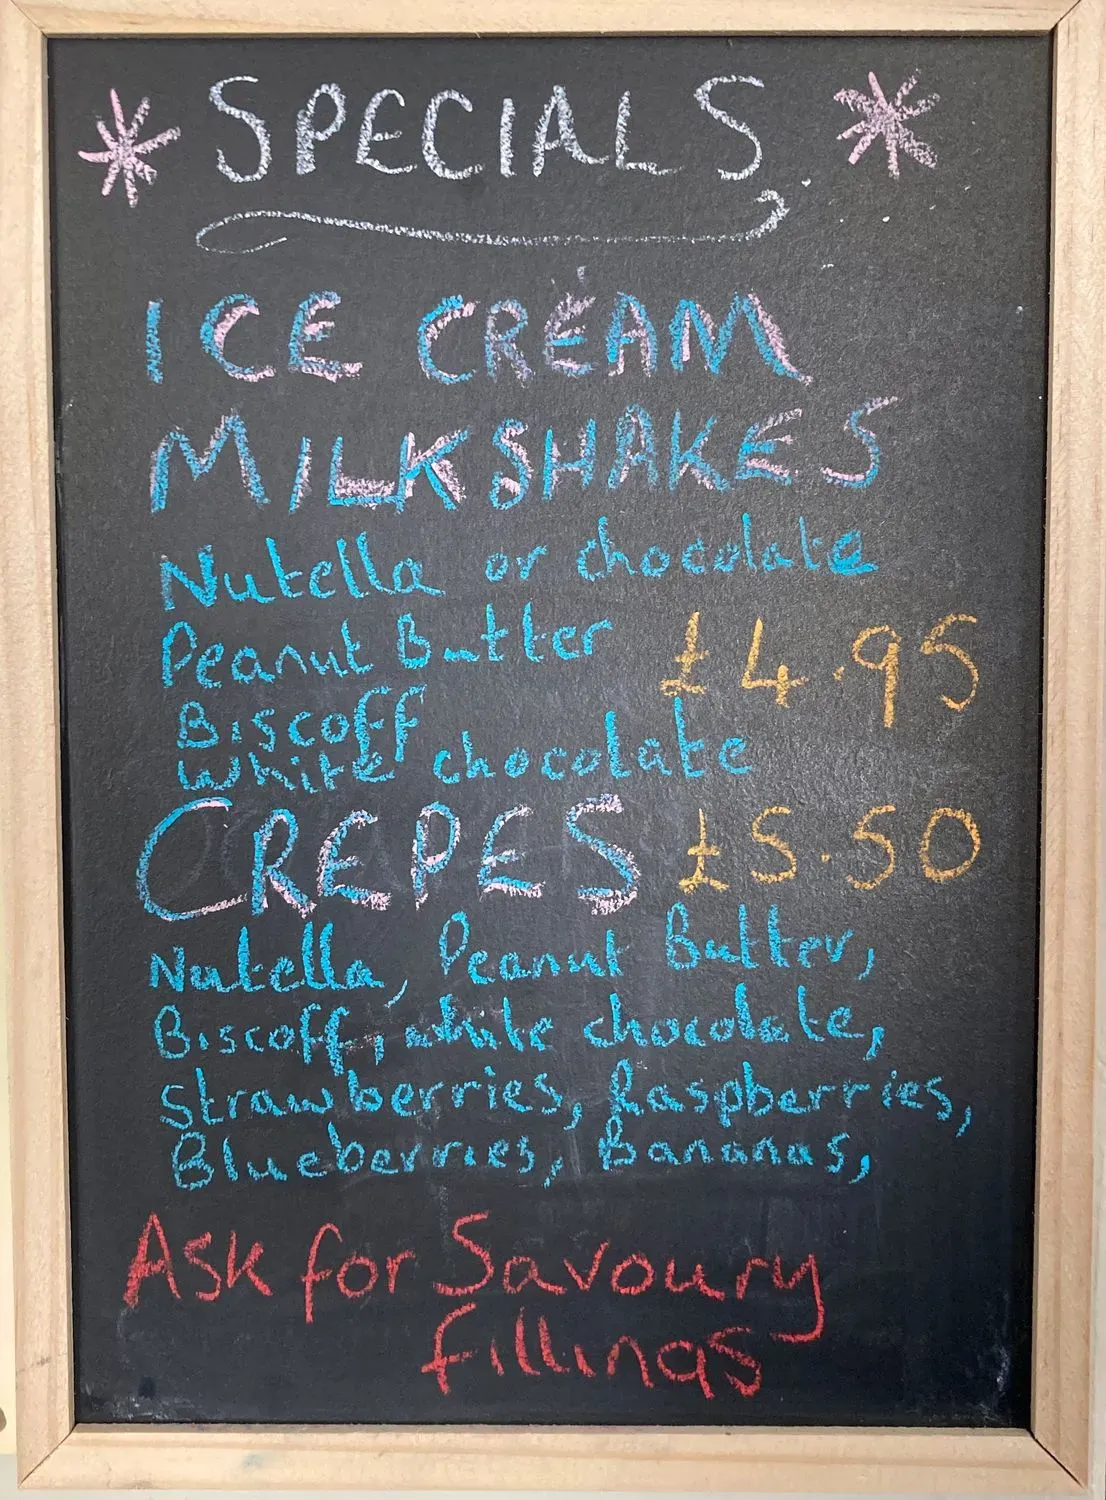 * SPECIALS *
ICE CREAM
MILKSHAKES
Nutella or chocolate
Peanut Butter £4.95
Biscoff
White chocolate
CREPES £5.50
Nutella, Peanut Butter,
Biscoff, white chocolate,
Strawberries, Raspberries,
Blueberries, Bananas,
Ask for Savoury
fillings